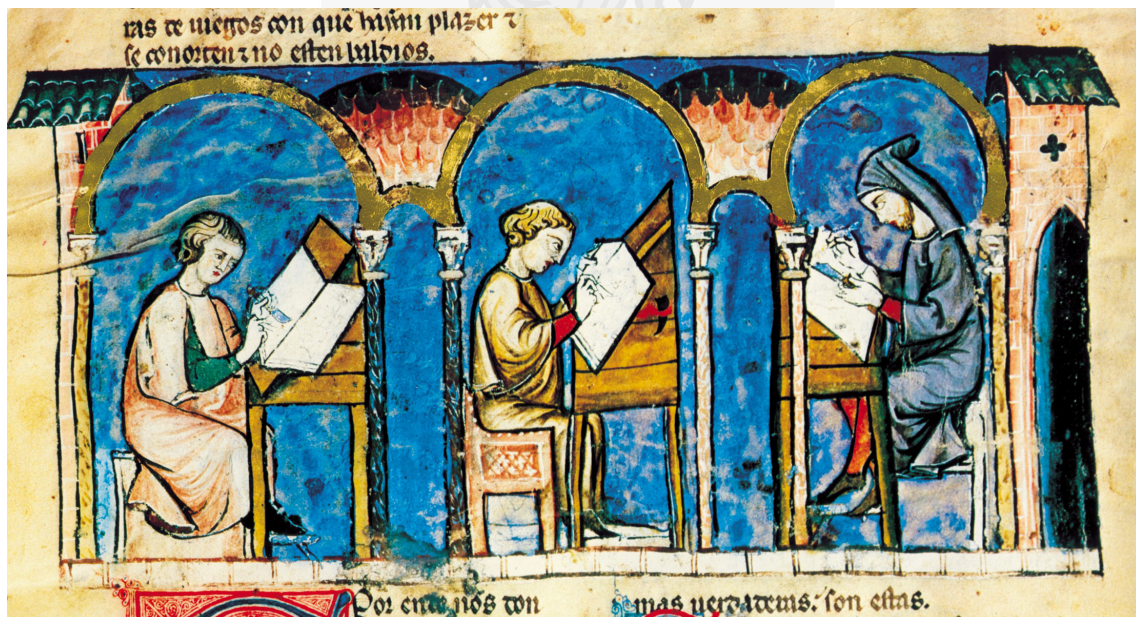 ras de iuegos con que hayan plazer ⁊
se conorten ⁊ no esten baldios.
Por ende nos don
mas uerdaderas. son estas.